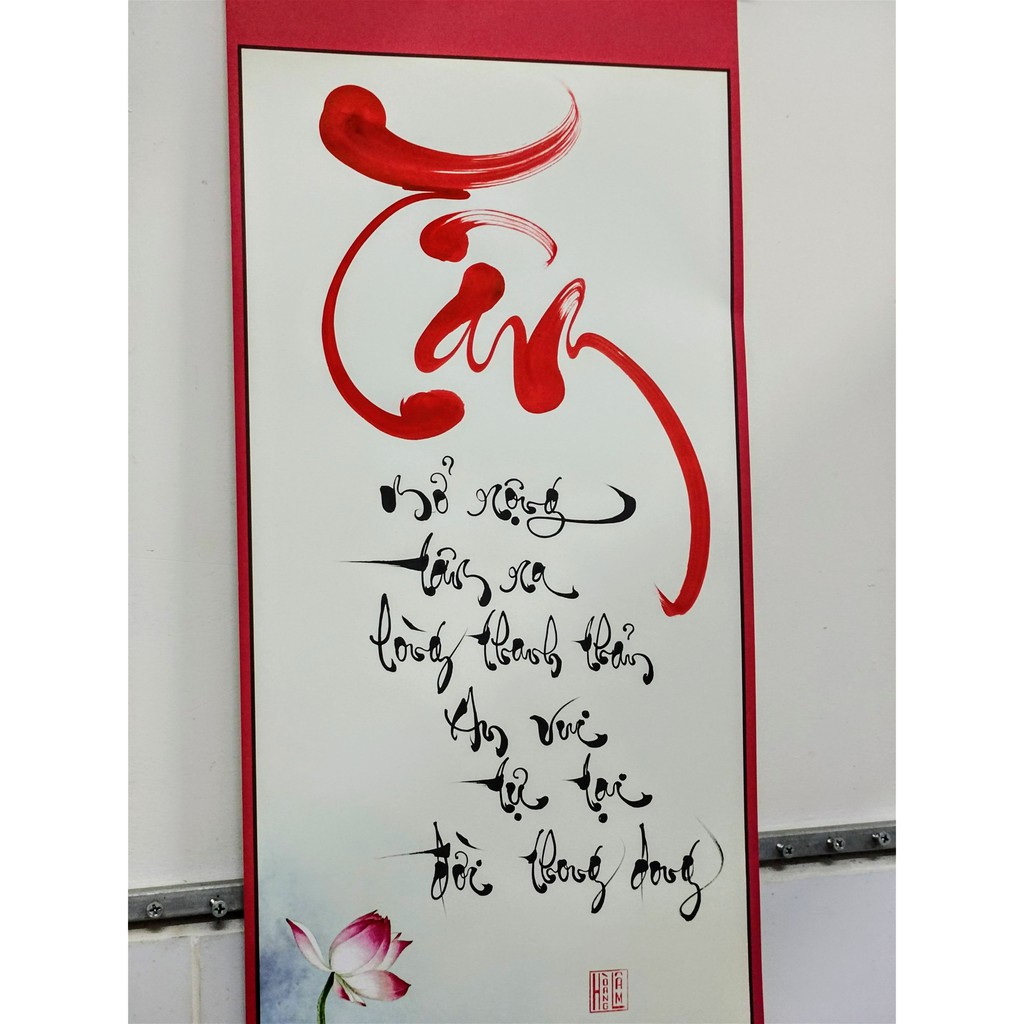 Tâm
Mở rộng
tâm ra
lòng thanh thản
An vui
tự tại
đời thong dong
HOÀNG LÂM